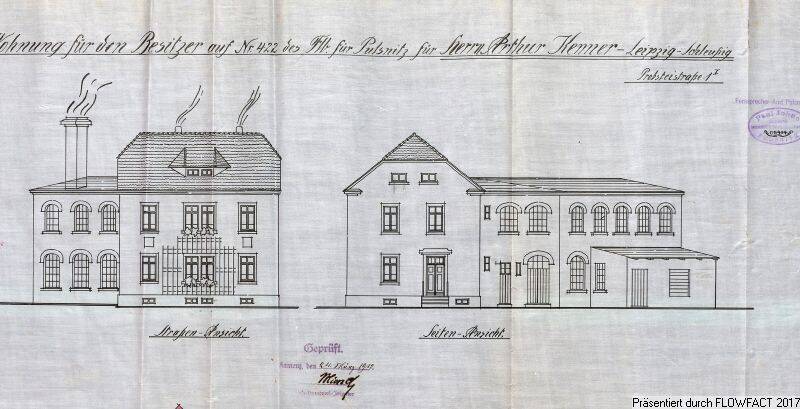 Wohnung für den Besitzer auf Nr 422 des Flb. für Pulsnitz für Herrn Arthur Kenner - Leipzig-Schleußig
Probsteistraße 1 I
Fernsprecher Amt Pulsnitz
Paul Joh
Straßen-Ansicht.
Seiten-Ansicht.
Geprüft.
Kamenz, den 24. März 1917.
Präsentiert durch FLOWFACT 2017